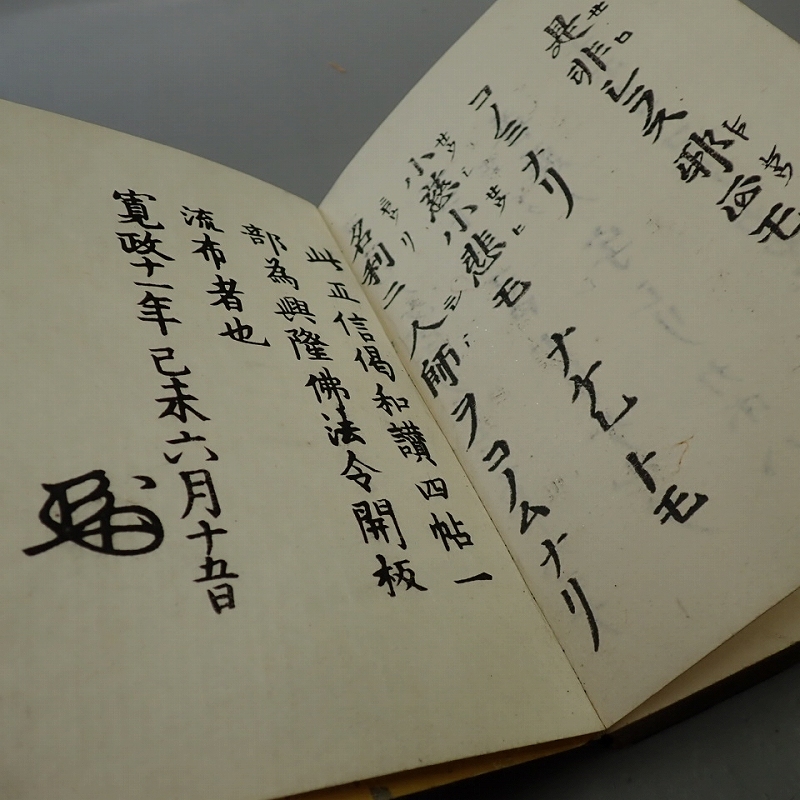 是非シラス 邪正モ
コノミナリ
小慈小悲モ ナケレトモ
名利ニ人師ヲコノムナリ
此正信偈和讃四帖一
部為興隆佛法令開板
流布者也
寛政十一年己未六月十五日